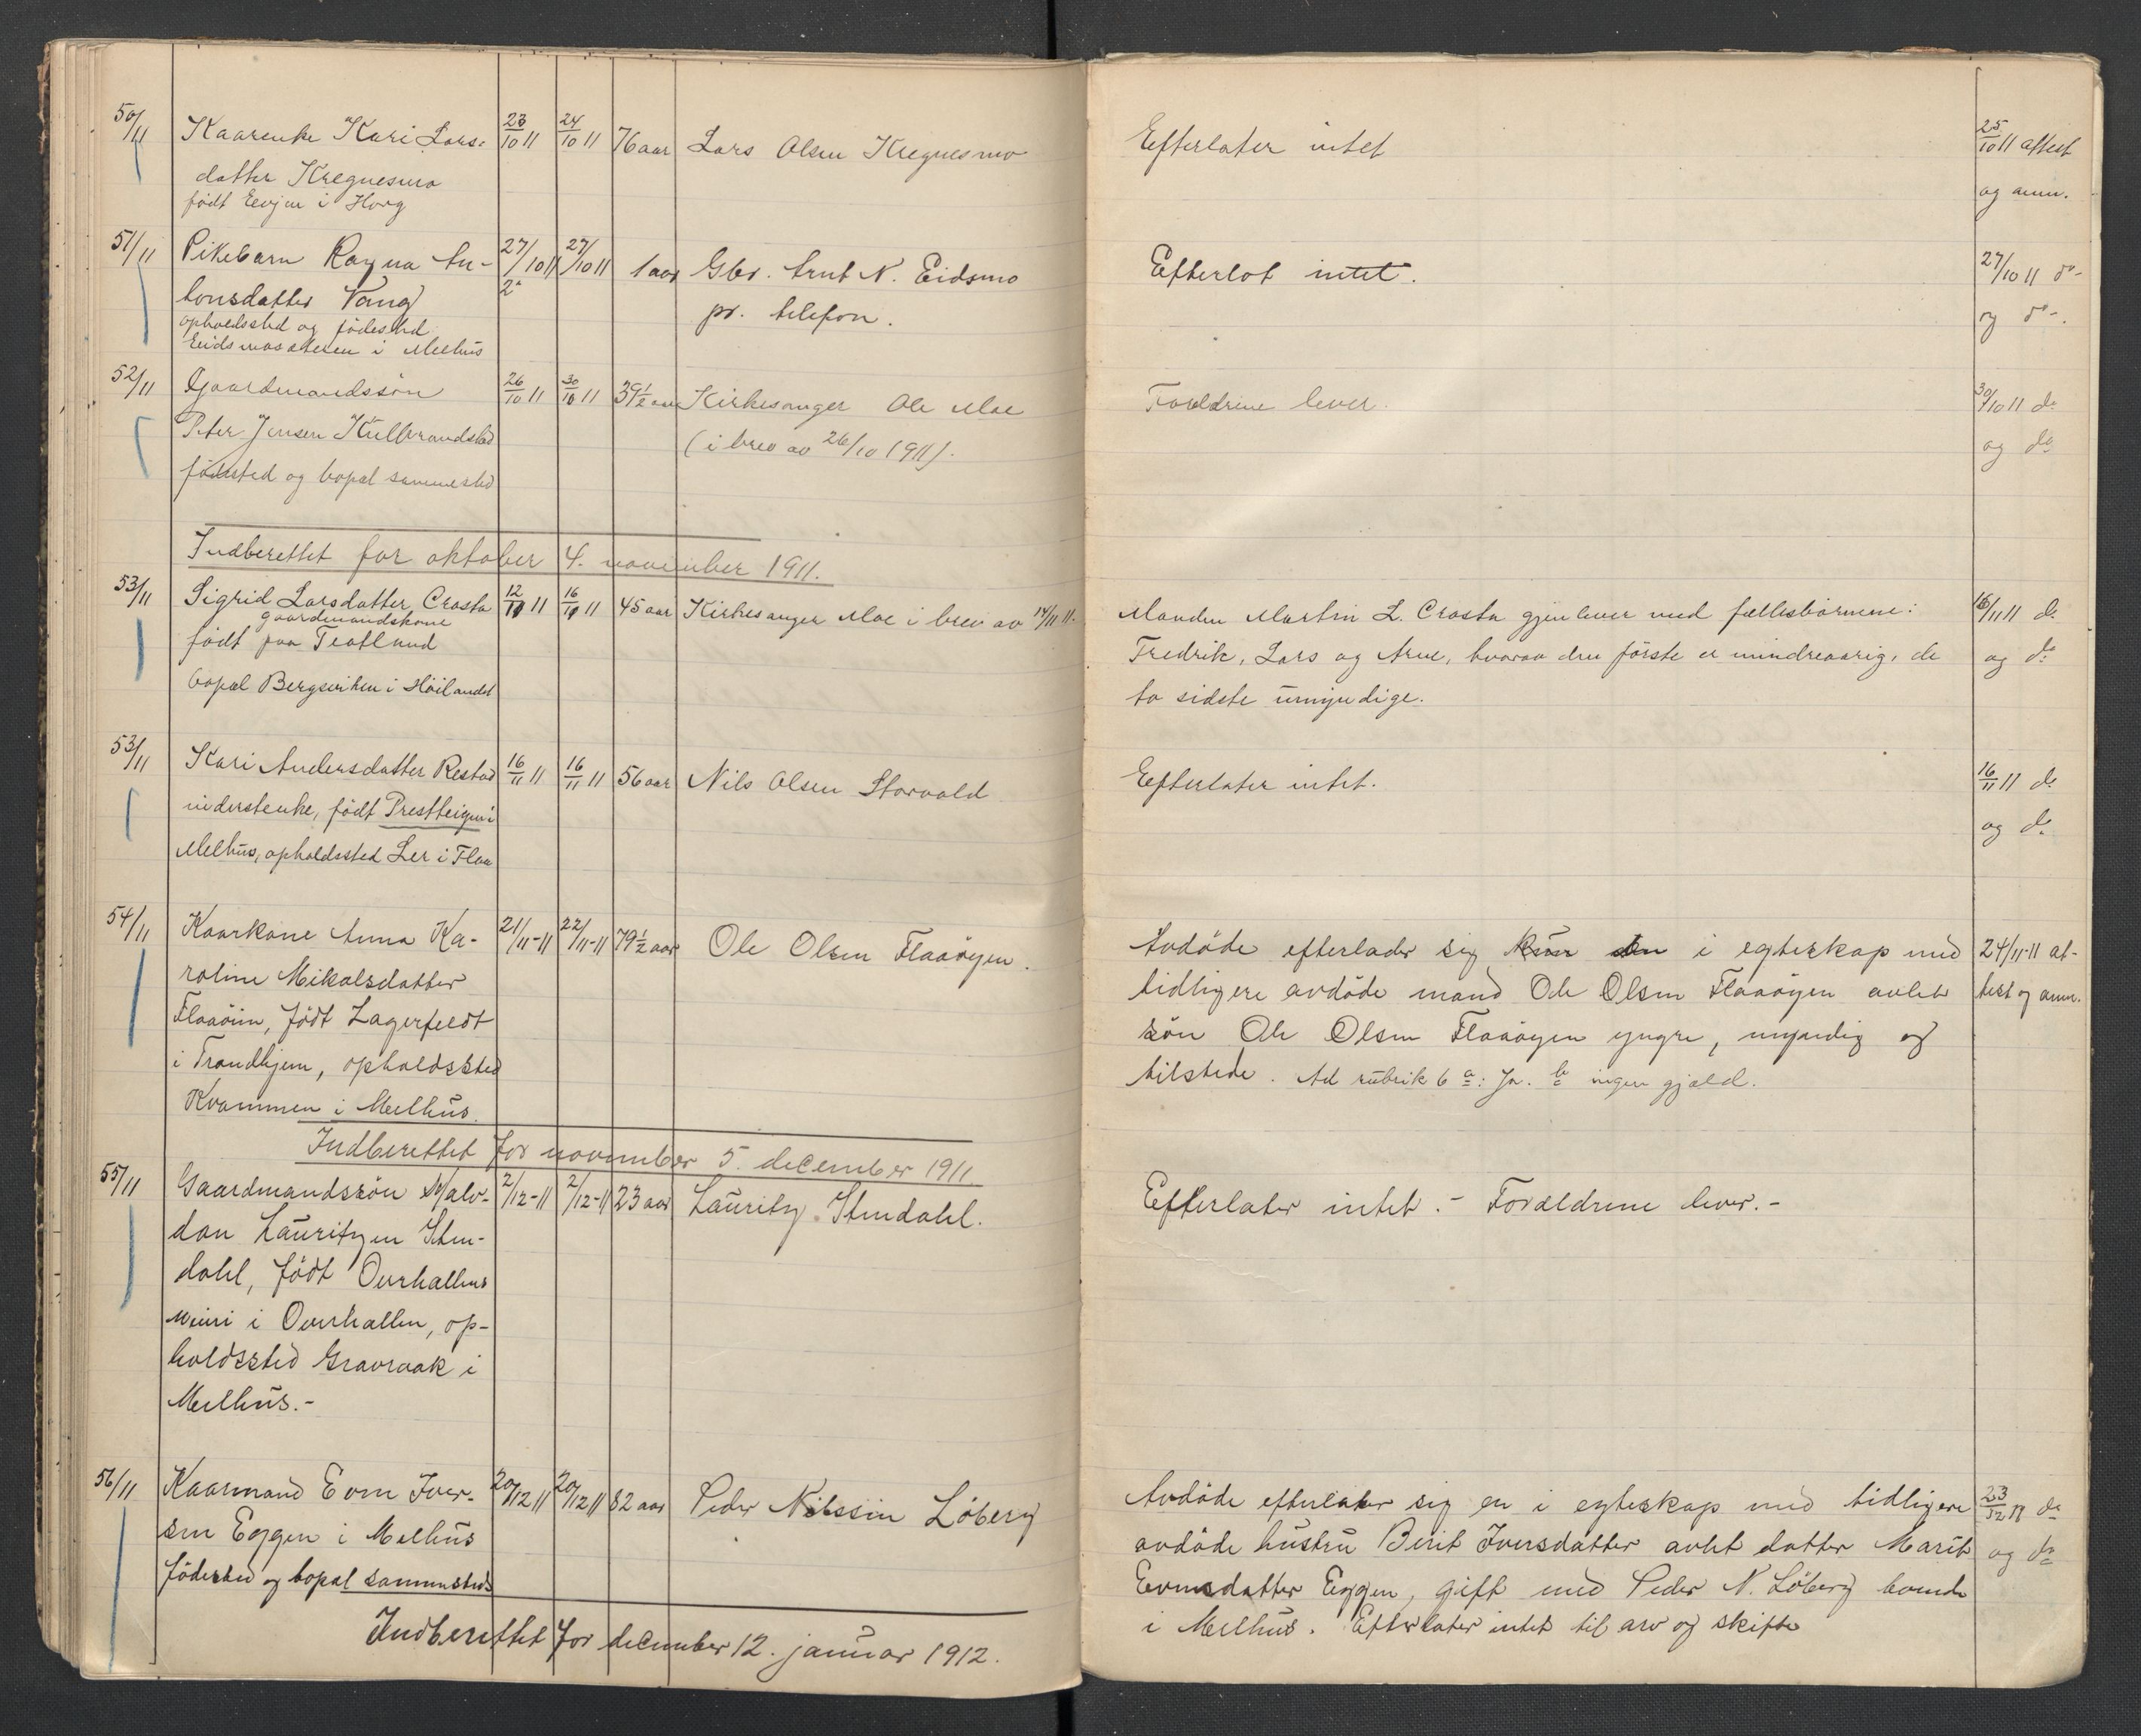 50/11 Kaarenke Kari Lars- 23/10 11 24/10 11 76 aar Lars Olsen Kregnesmo Efterlater intet 25/10 11 attest
datter Kregnesmo og anm.
født Evjen i Horg
51/11 Pikebarn Ragna An- 27/10 11 27/10 11 1 aar Gbr. Arnt N. Eidsmo Efterlot intet. 27/10 11 do
tonsdatter Vang pr. telefon. og do.
opholdssted og fødested
Eidsmosæteren i Melhus
52/11 Gaardmandssøn 26/10 11 30/10 11 39½ aar Kirkesanger Ole Moe Forældrene lever. 30/10 11 do
Peter Jensen Kulbrandstad (i brev av 26/10 1911). og do
fødested og bopæl sammested
Indberettet for oktober 4. november 1911.
53/11 Sigrid Larsdatter Crasta 12/11 11 16/11 11 45 aar Kirkesanger Moe i brev av 14/11 11. Manden Martin L. Crasta gjenlever med fællesbørnene: 16/11 11 do
gaardmandskone
født paa Teatland Fredrik, Lars og Arne, hvorav den første er mindreaarig, de og do
bopæl Bergsviken i Høilandet to sidste umyndige.
53/11 Kari Andersdatter Restad 16/11 11 16/11 11 56 aar Nils Olsen Storvold Efterlater intet. 16/11 11 do
inderstenke, født Prestteigen i og do
Melhus, opholdssted Ler i Flaa
54/11 Kaarkone Anna Ka- 21/11-11 22/11-11 79½ aar Ole Olsen Flaaøyen. Avdøde efterlader sig kun den i egteskap med 24/11-11 at-
roline Mikalsdatter tidligere avdøde mand Ole Olsen Flaaøyen avlet test og anm.
Flaaøien, født Lagerfeldt søn Ole Olsen Flaaøyen yngre, myndig og
i Trondhjem, opholdssted tilstede. Ad rubrik 6 a: Ja. b ingen gjæld.
Kvammen i Melhus.
Indberettet for november 5. december 1911
55/11 Gaardmandssøn Halv- 2/12-11 2/12-11 23 aar Lauritz Stendahl. Efterlater intet. - Forældrene lever. -
dan Lauritzen Sten-
dahl, født Overhallens
meieri i Overhallen, op-
holdssted Gravraak i
Melhus.-
56/11 Kaarmand Even Iver- 20/12 11 20/12 11 82 aar Peder Nilssen Løberg Avdøde efterlater sig en i egteskap med tidligere 23/12 11 do
sen Eggen i Melhus avdøde hustru Berit Iversdatter avlet datter Marit og do
fødested og bopæl sammesteds Evensdatter Eggen, gift med Peder N. Løberg boende
i Melhus. Efterlater intet til arv og skifte
Indberettet for december 12. januar 1912.